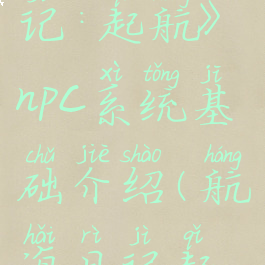 记:起航》
xì tǒng jī
npc系统基
chǔ jiè shào háng
础介绍(航
hǎi rì jì qǐ
海日记起